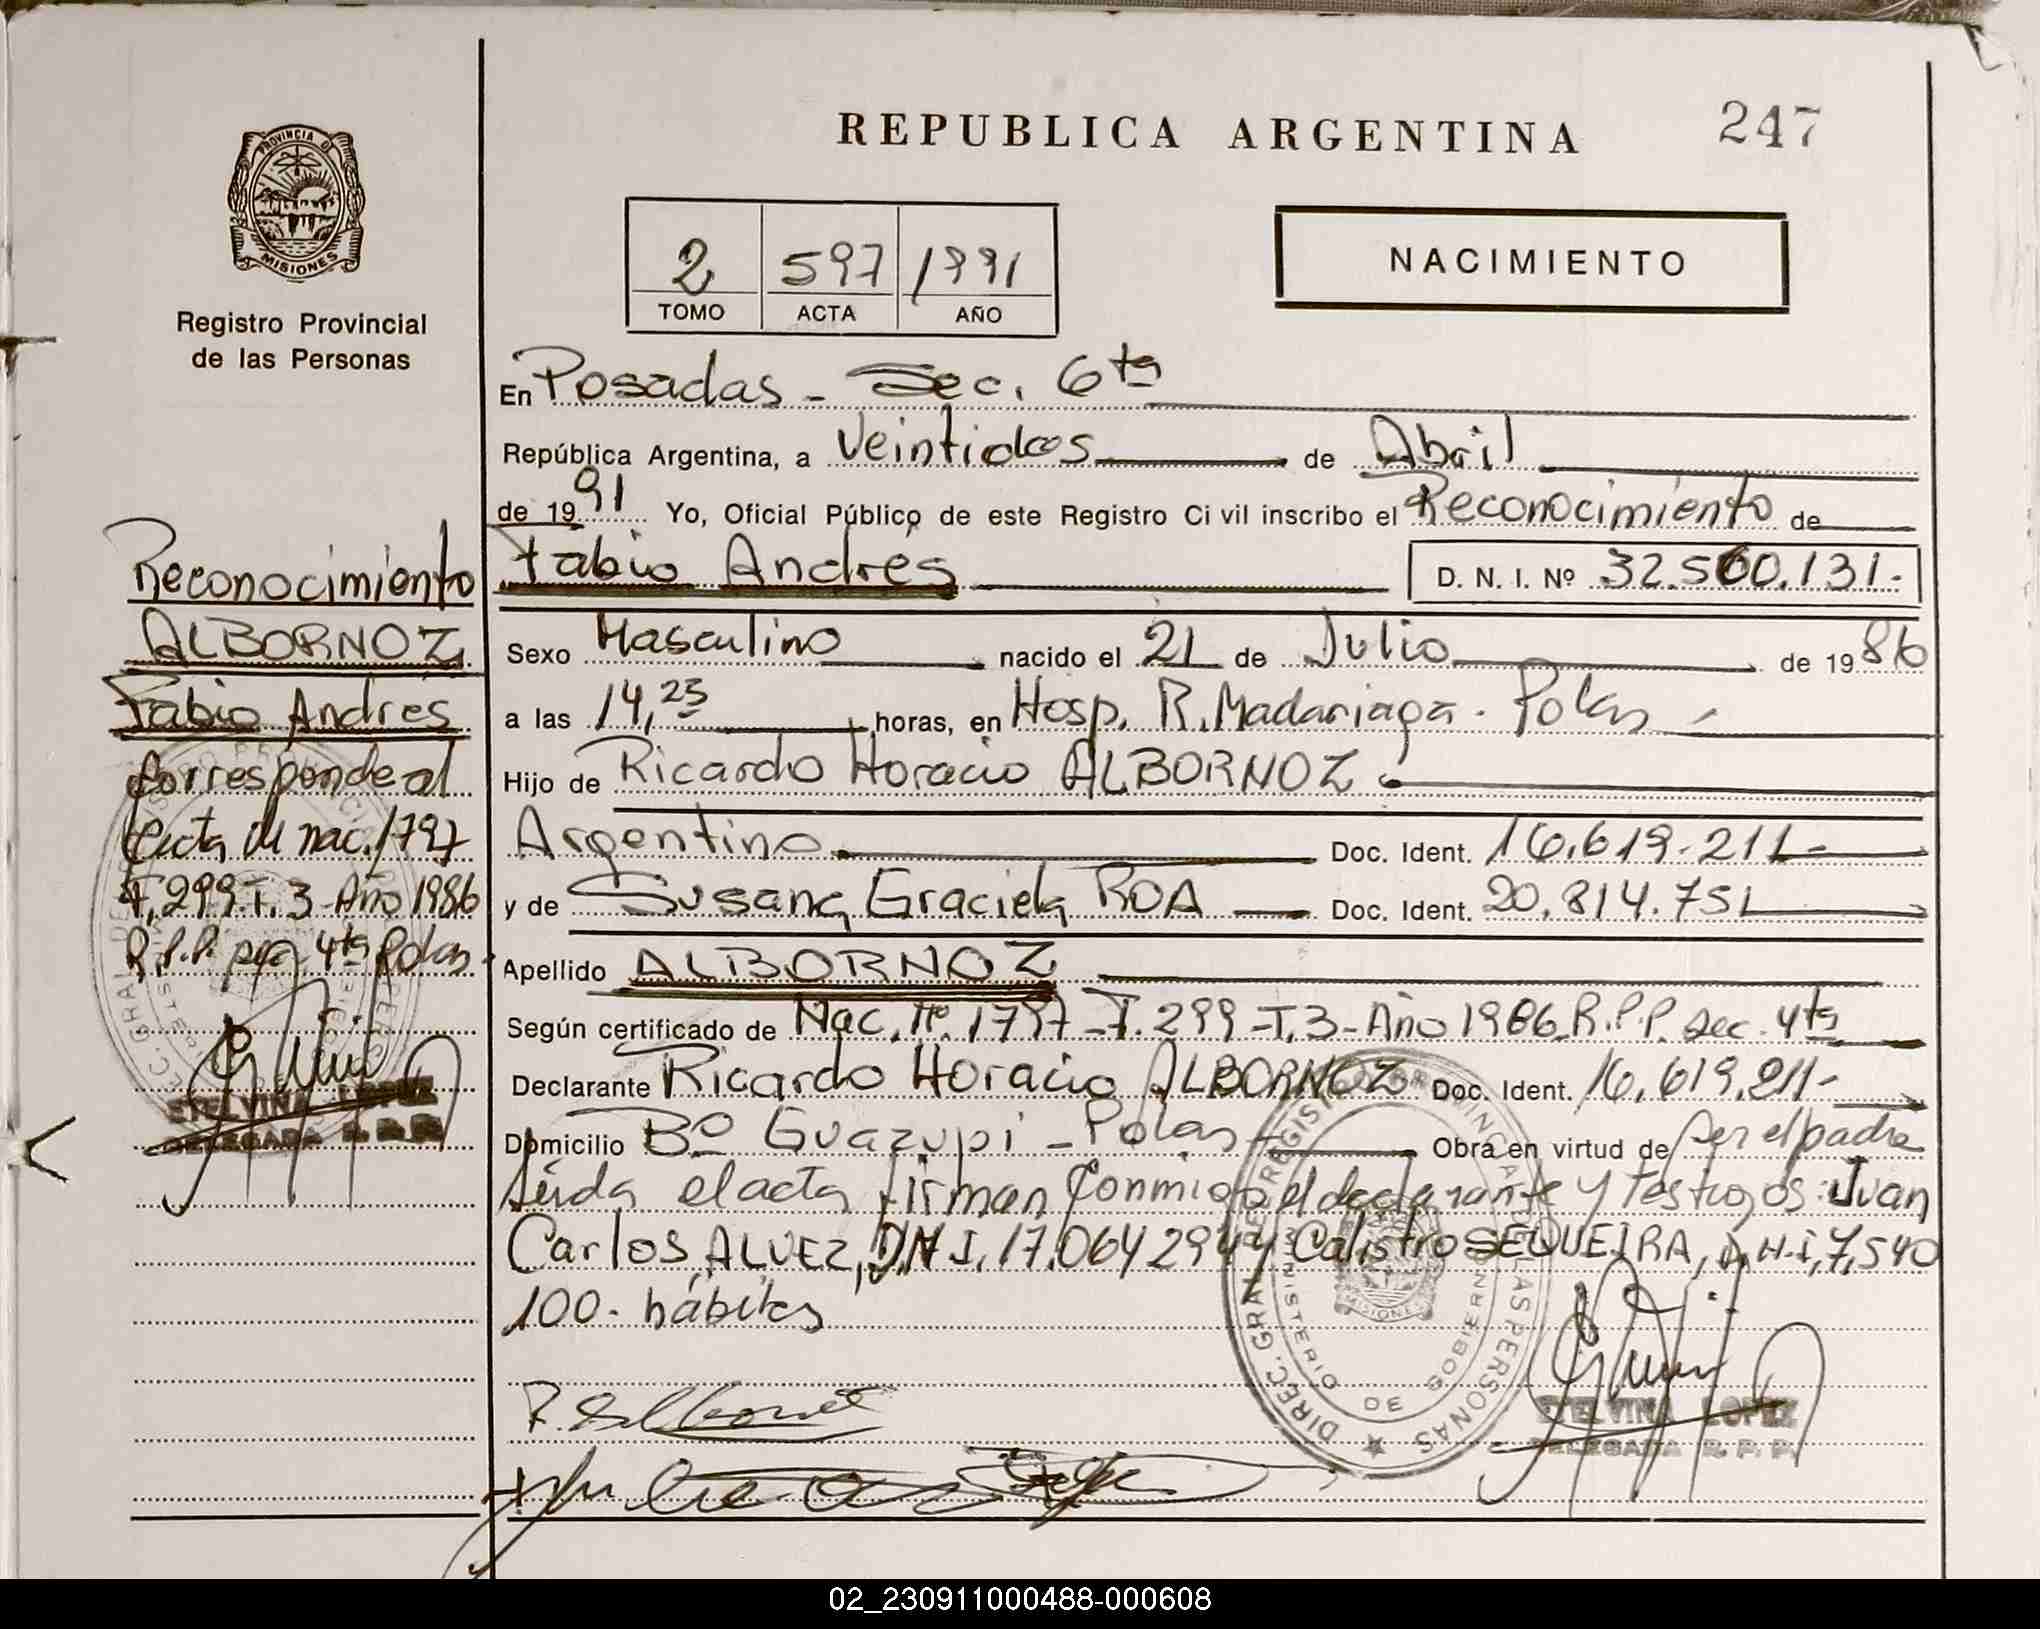 REPUBLICA ARGENTINA
247
PROVINCIA DE
MISIONES
Registro Provincial
de las Personas
2 597 1991
TOMO ACTA AÑO
NACIMIENTO
En Posadas - Sec. 6ta
República Argentina, a Veintidos de Abril
de 1991 Yo, Oficial Público de este Registro Civil inscribo el Reconocimiento de
Fabio Andrés D. N. I. Nº 32.560.131.-
Sexo Masculino nacido el 21 de Julio de 1986
a las 14,25 horas, en Hosp. R. Madariaga - Pdas
Hijo de Ricardo Horacio ALBORNOZ
Argentino Doc. Ident. 16.619.211-
y de Susana Graciela ROA Doc. Ident. 20.814.751
Apellido ALBORNOZ
Según certificado de Nac. Nº 1797-F. 299-T. 3-Año 1986 R.P.P. Sec. 4ta
Declarante Ricardo Horacio ALBORNOZ Doc. Ident. 16.619.211-
Domicilio Bº Guazupi - Pdas Obra en virtud de Ser el padre
Leída el acta firman conmigo el declarante y testigos: Juan
Carlos ALVEZ, D.N.I. 17.064294 y Calistro SEQUEIRA, D.N.I. 7.540
100- hábiles
STELVINA LOPEZ
DELEGADA R. P. P.
DIREC. GRAL. DE REGISTRO PROVINCIAL DE LAS PERSONAS
MINISTERIO DE GOBIERNO
MISIONES
Reconocimiento
ALBORNOZ
Fabio Andrés
Corresponde al
acta de nac. 1797
F. 299-T. 3-Año 1986
R.P.P. 4ta Pdas
STELVINA LOPEZ
DELEGADA R. P. P.
02_230911000488-000608